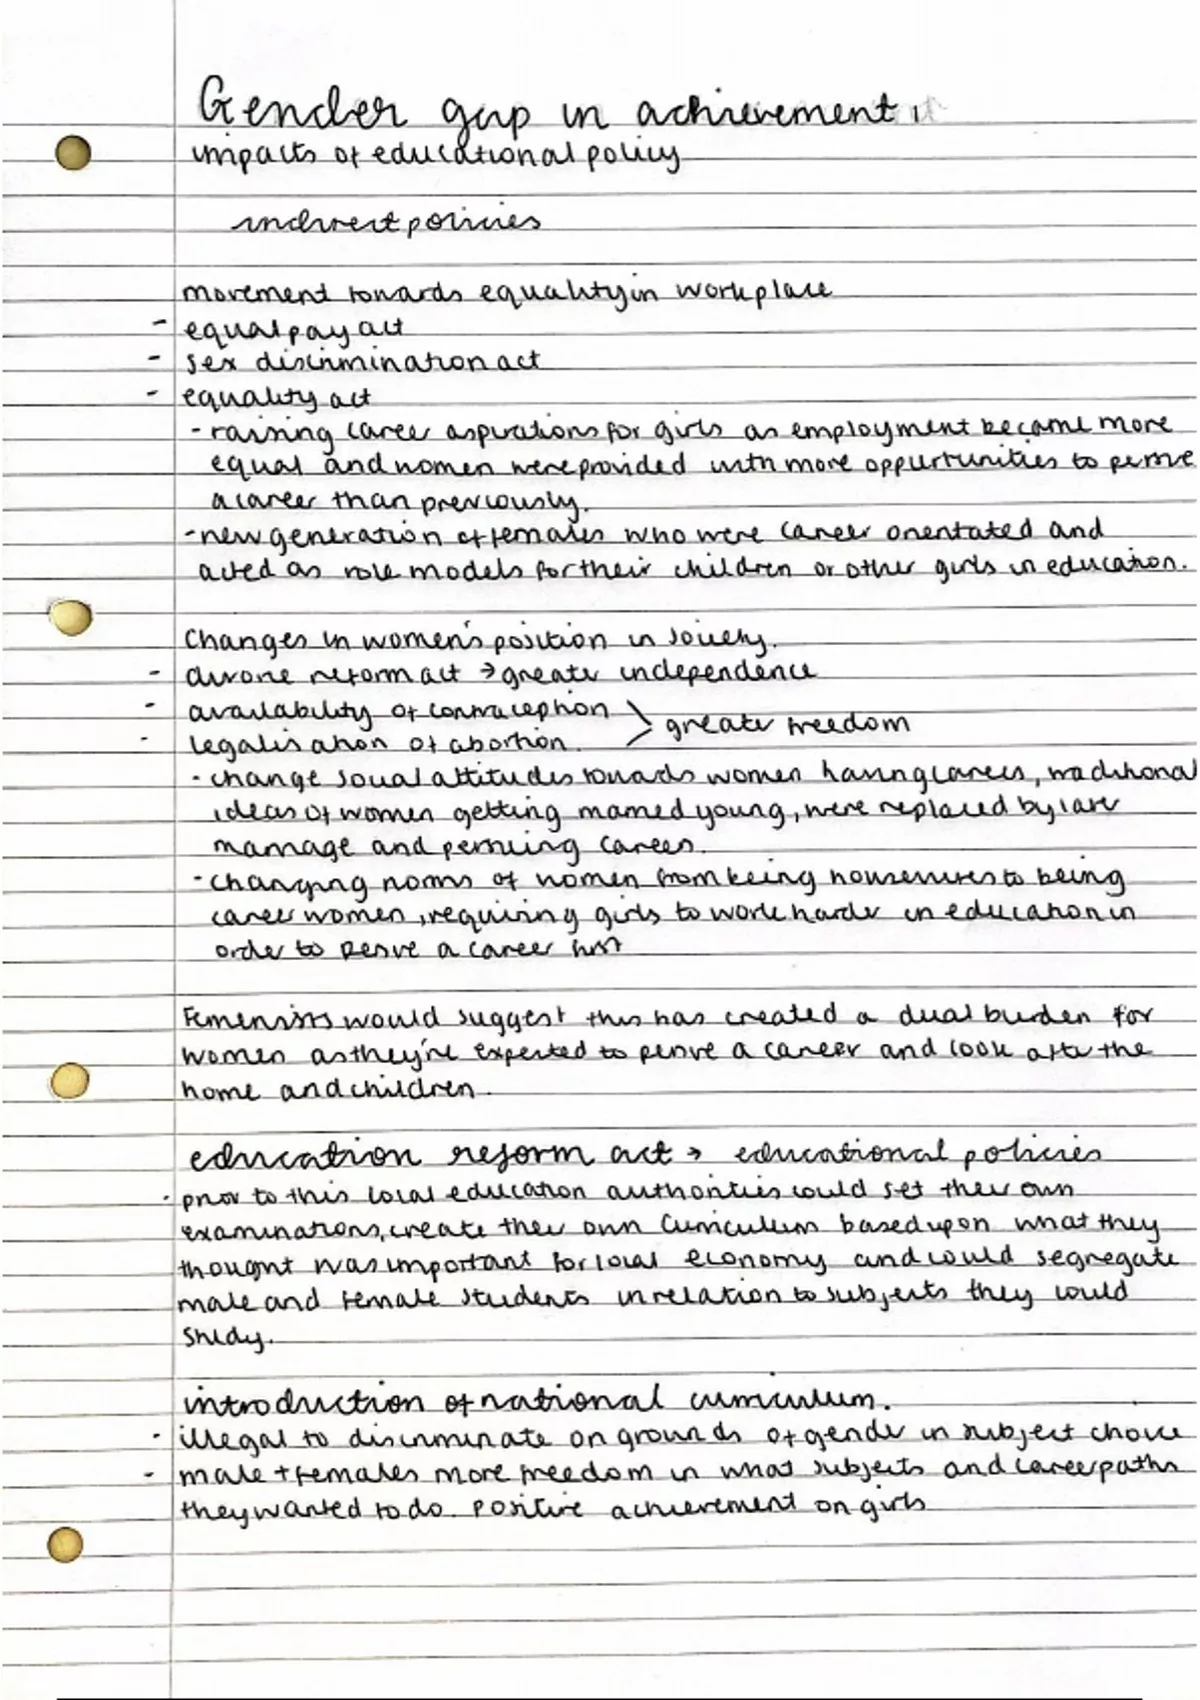 Gender gap in achievement
impacts of educational policy
indirect policies
movement towards equality in workplace
- equal pay act
- sex discrimination act
- equality act
- raising career aspirations for girls as employment became more
equal and women were provided with more oppurtunities to persue
a career than previously.
- new generation of females who were career orientated and
acted as role models for their children or other girls in education.
Changes in women's position in society.
- divorce reform act → greater independence
- availability of contraception > greater freedom
- legalisation of abortion.
- change social attitudes towards women having careers, traditional
ideas of women getting married young, were replaced by later
marriage and persuing careers.
- changing norms of women from being housewives to being
career women, requiring girls to work harder in education in
order to persue a career first
Femenists would suggest this has created a dual burden for
women as they're expected to persue a career and look after the
home and children.
education reform act → educational policies
- prior to this local education authorities could set their own
examinations, create their own curriculum based upon what they
thought was important for local economy and could segregate
male and female students in relation to subjects they could
study.
introduction of national curriculum.
- illegal to discriminate on grounds of gender in subject choice
- male + females more freedom in what subjects and career paths
they wanted to do. positive achievement on girls